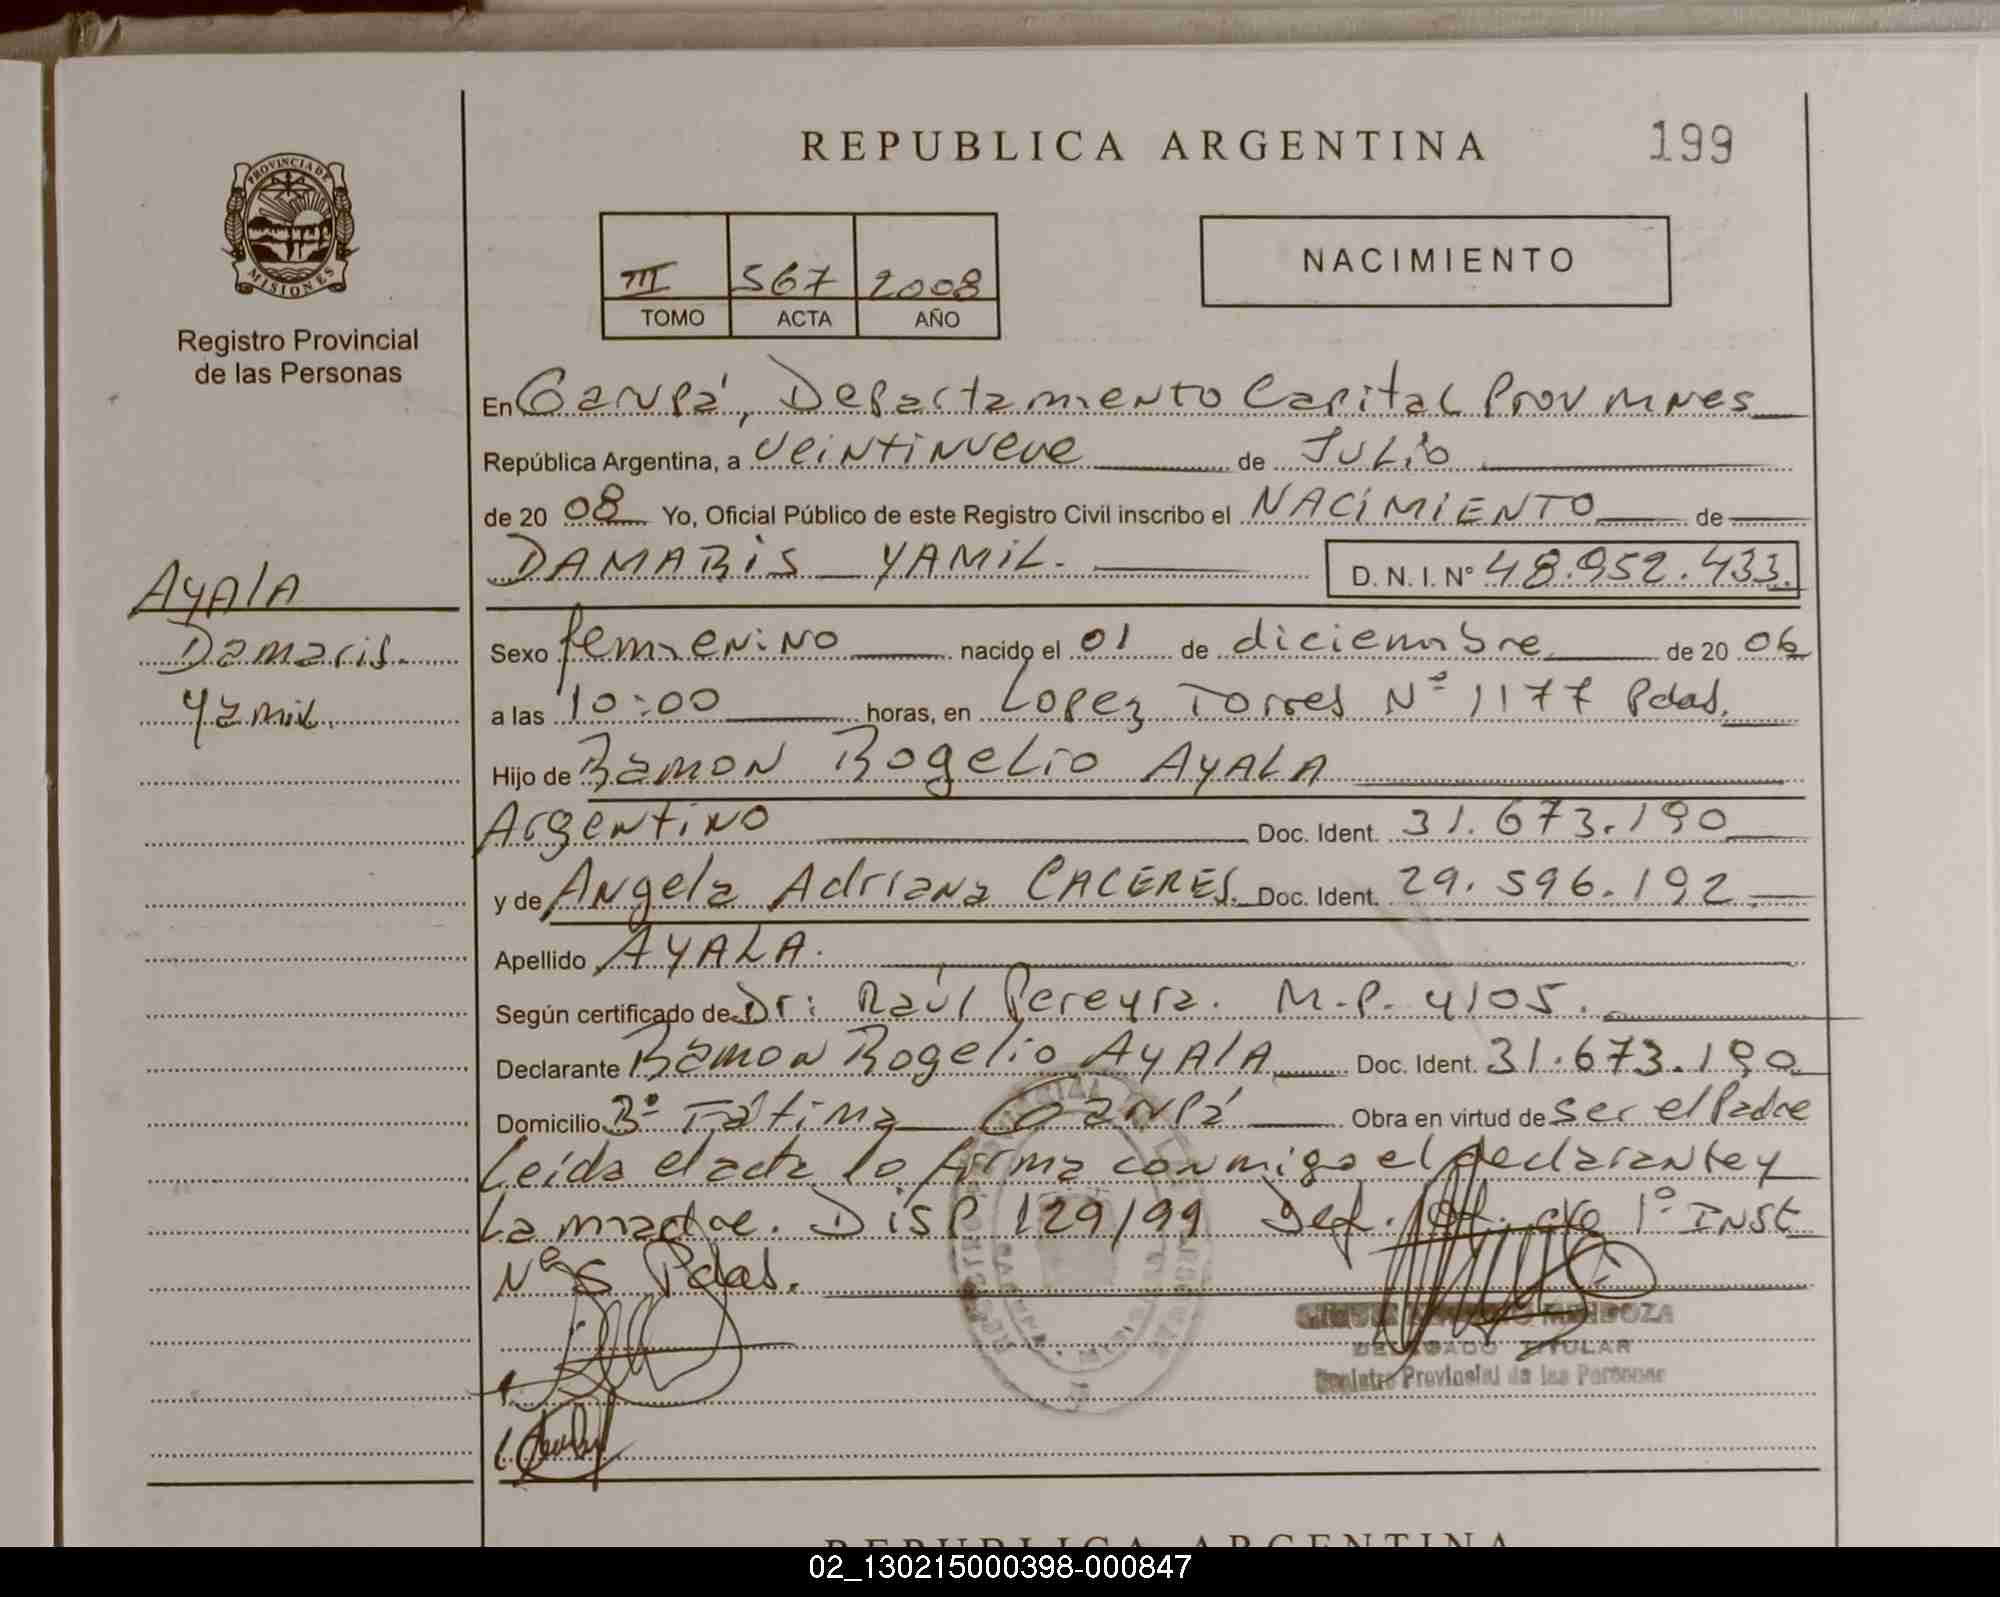 REPUBLICA ARGENTINA
199
PROVINCIA DE MISIONES
Registro Provincial
de las Personas
III 567 2008
TOMO ACTA AÑO
NACIMIENTO
En Garupá, Departamento Capital Prov Mnes
República Argentina, a veintinueve de Julio
de 20 08 Yo, Oficial Público de este Registro Civil inscribo el NACIMIENTO de
DAMARIS YAMIL. D. N. I. Nº 48.952.433.
AYALA
Damaris
Yamil.
Sexo femenino nacido el 01 de diciembre de 20 06
a las 10:00 horas, en Lopez Torres Nº 1177 Pdas.
Hijo de Ramon Rogelio AYALA
Argentino Doc. Ident. 31.673.190
y de Angela Adriana CACERES. Doc. Ident. 29.596.192
Apellido AYALA.
Según certificado de Dr: Raúl Pereyra. M.P. 4105.
Declarante Ramon Rogelio AyAlA Doc. Ident. 31.673.190
Domicilio Bº Fátima Garupá Obra en virtud de ser el Padre
Leída el acta lo firma conmigo el declarante y
la madre. Disp 129/99 Def. Of. 1º Inst
Nº 5 Pdas.
MENDOZA
DELEGADO TITULAR
Registro Provincial de las Personas
REPUBLICA ARGENTINA
02_130215000398-000847